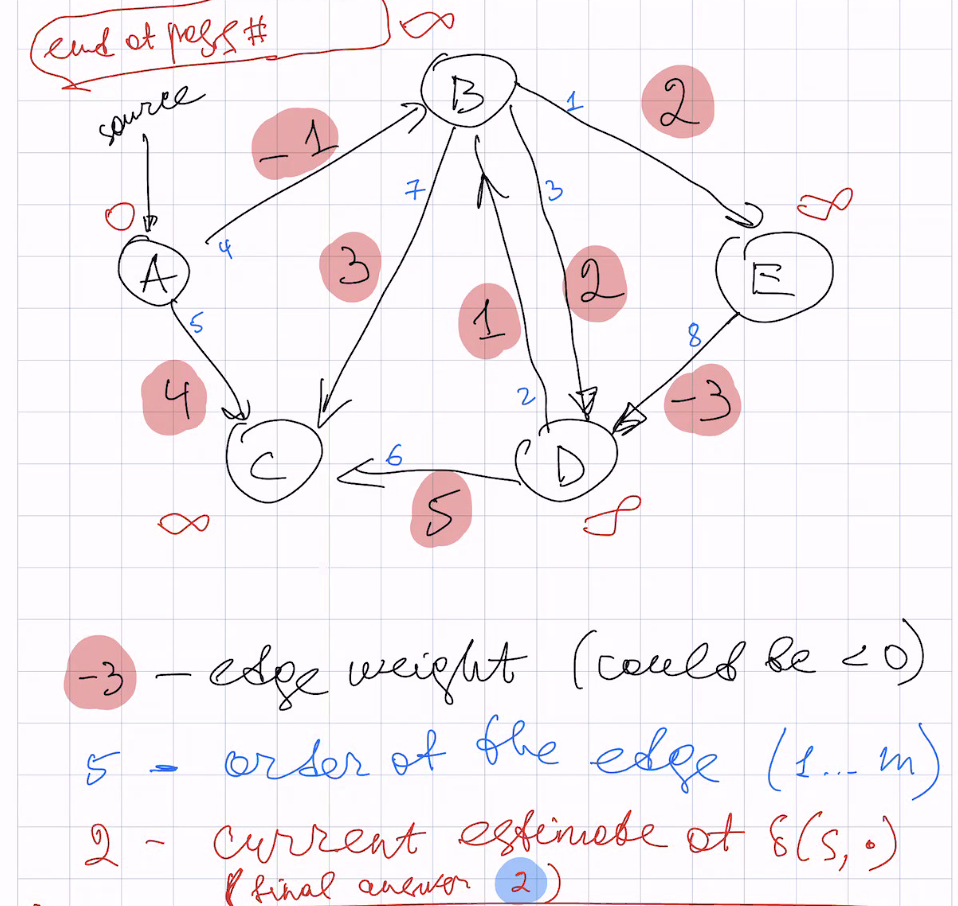 end of pass #
∞
source
B
1
2
-1
7
3
∞
0
4
A
3
2
E
5
1
8
4
2
-3
C
6
D
5
∞
∞
-3 - edge weight (could be < 0)
5 - order of the edge (1... m)
2 - current estimate of δ(s, •)
(final answer 2)